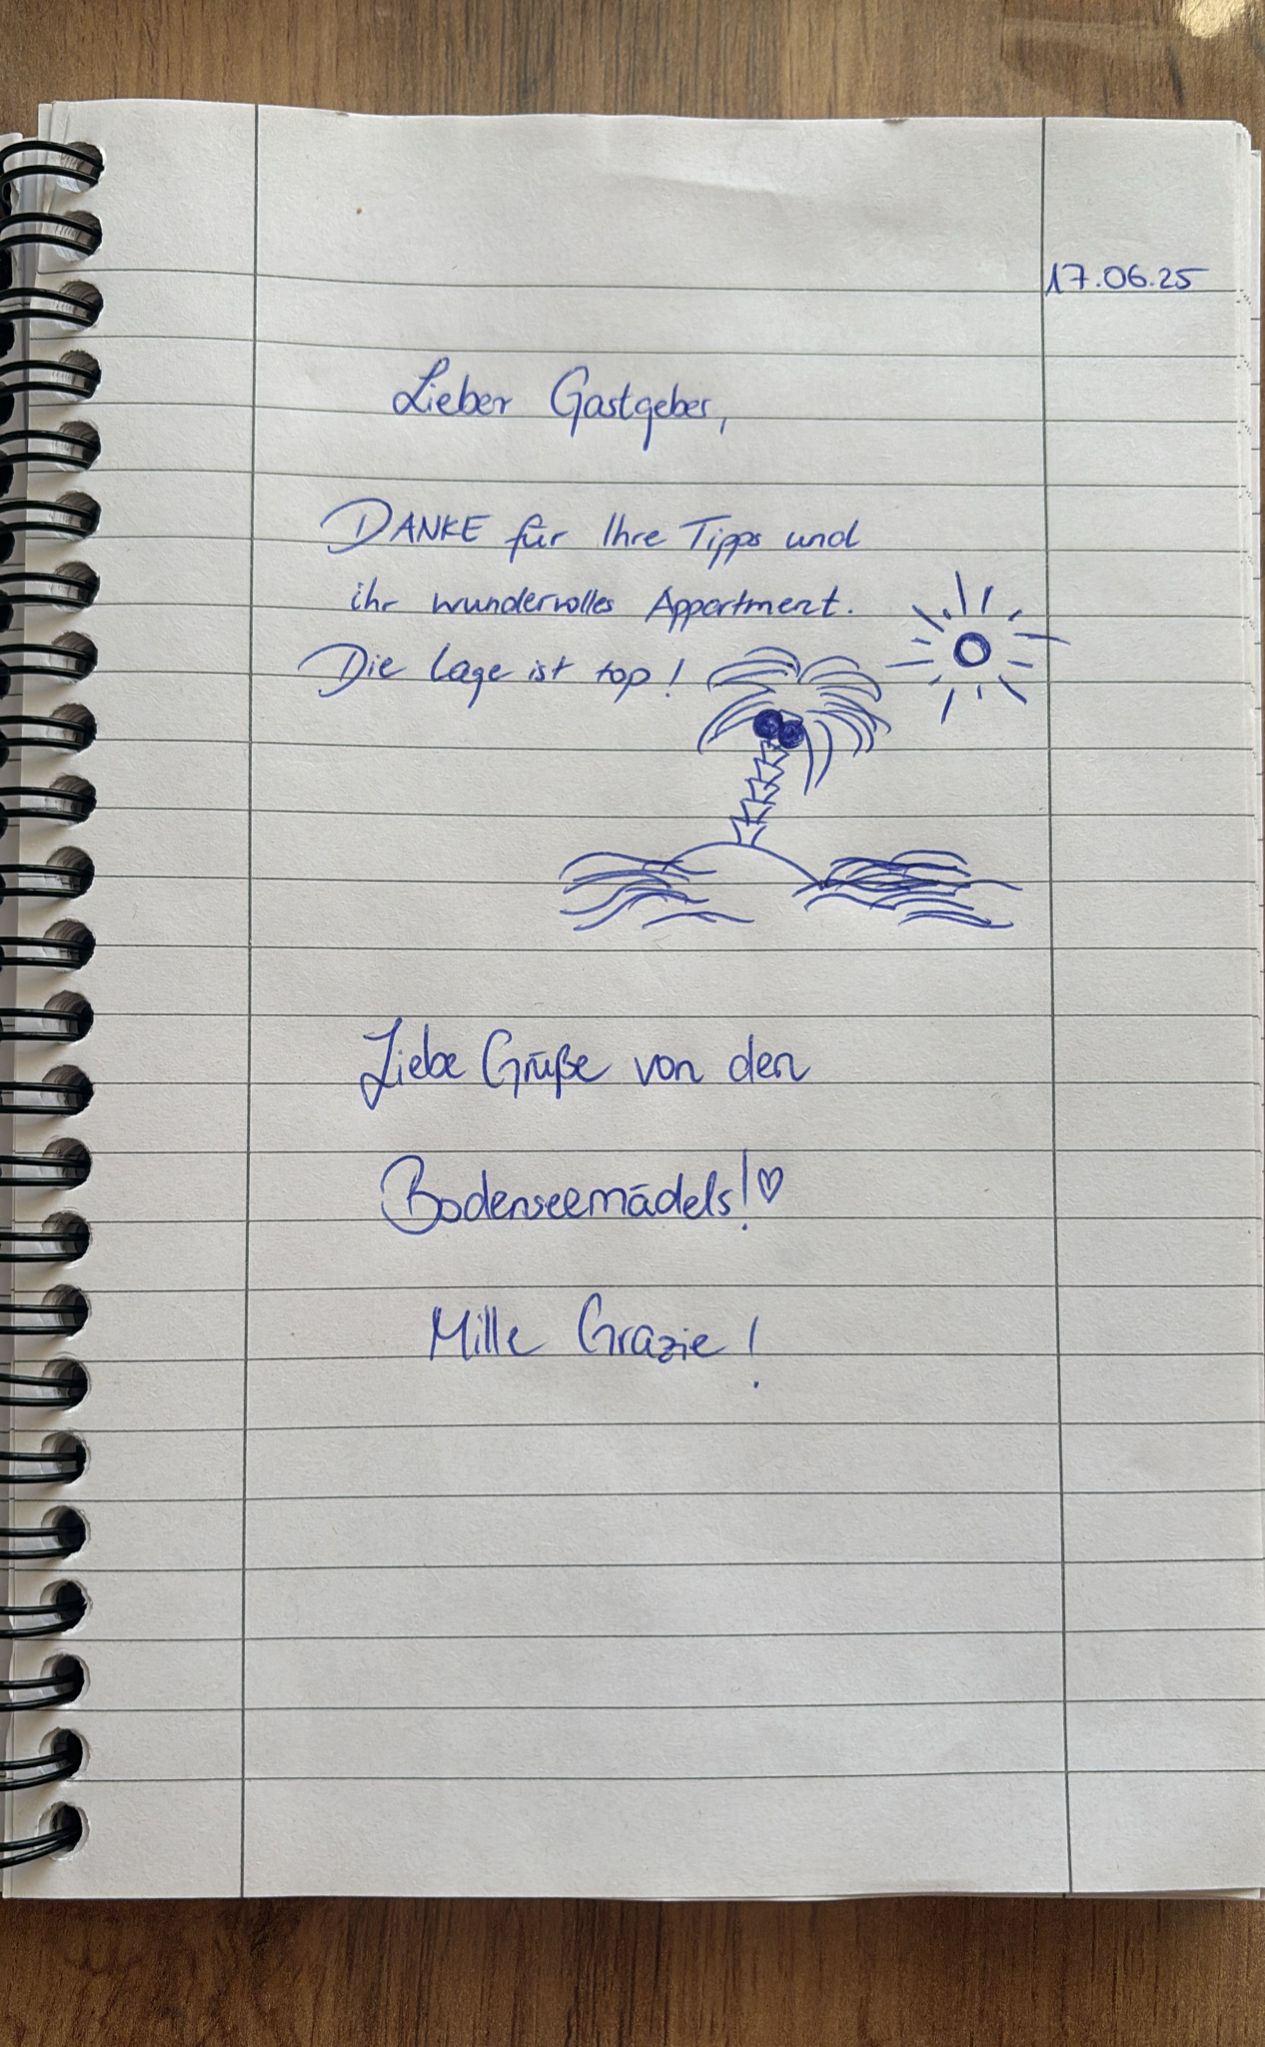 17.06.25
Lieber Gastgeber,
DANKE für Ihre Tipps und
ihr wundervolles Appartment.
Die Lage ist top!
Liebe Grüße von den
Bodenseemädels!♡
Mille Grazie!